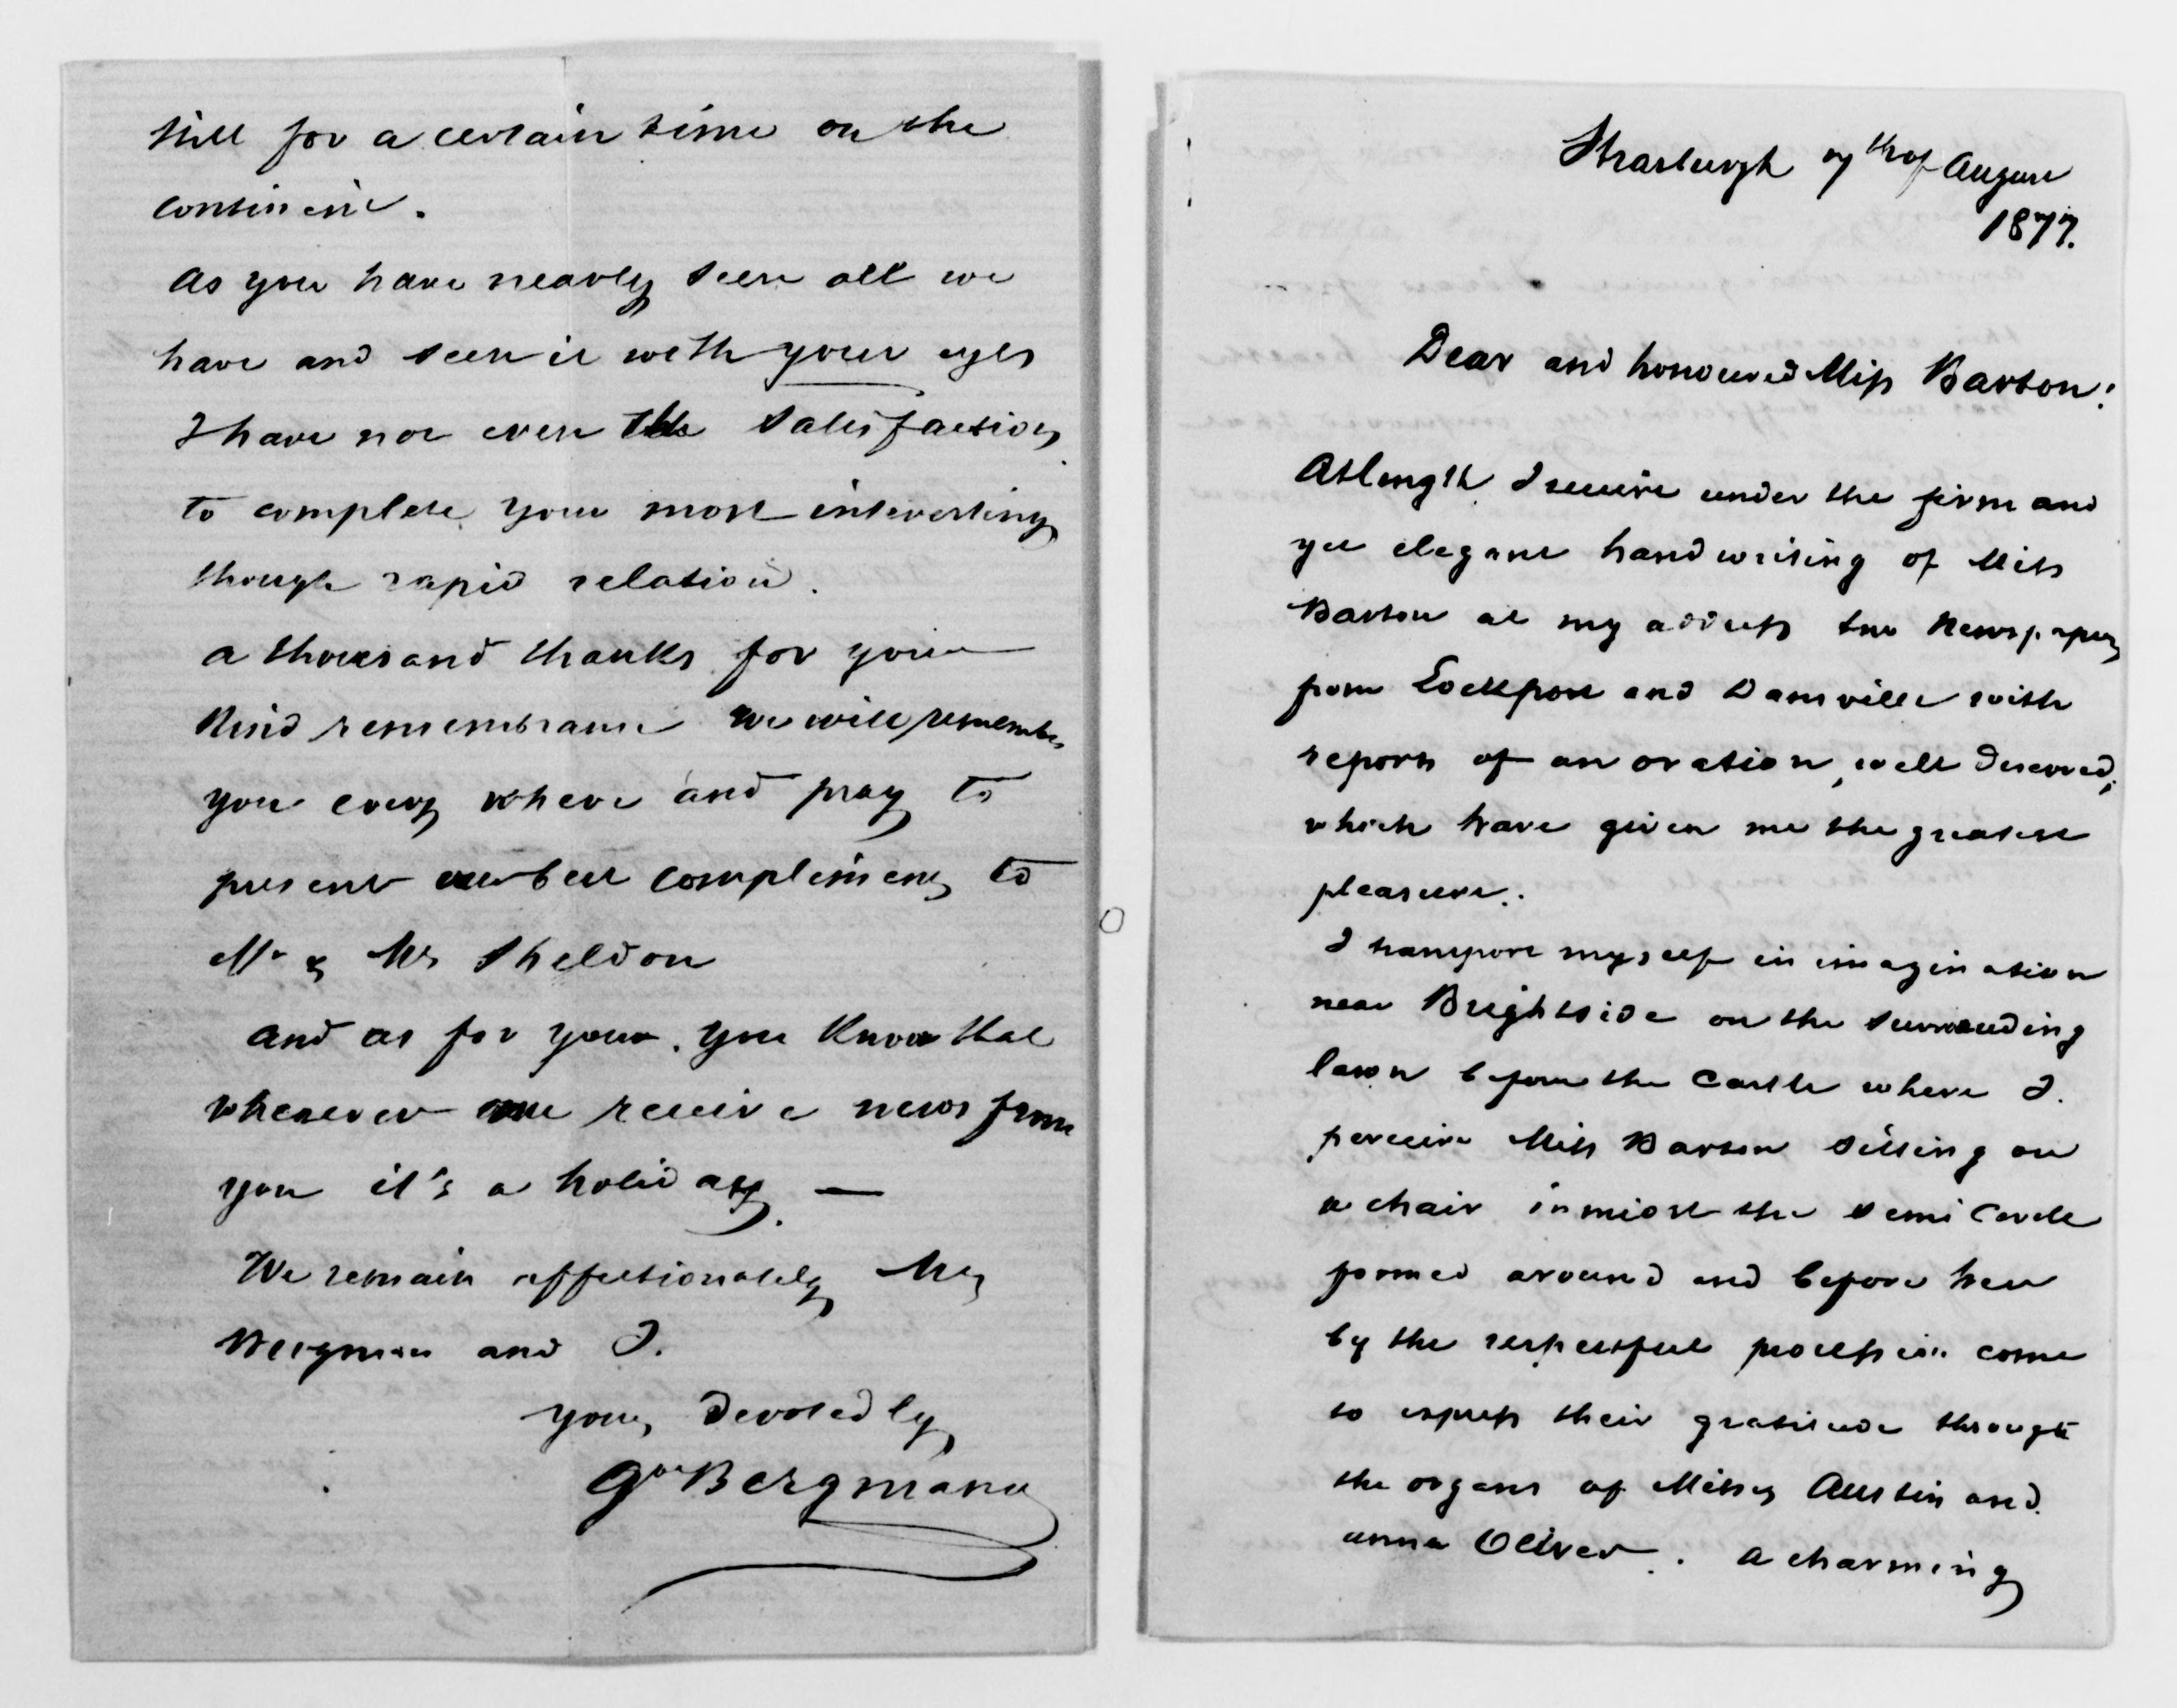 still for a certain time on the
continent.
As you have nearly seen all we
have and seen it with your eyes
I have not even the satisfaction
to complete your most interesting
though rapid relation.
a thousand thanks for your
kind remembrance we will remember
you every where and pray to
present our best compliments to
Mr & Mrs Sheldon
and as for your. you know that
whenever we receive news from
you it's a holiday. —
We remain affectionately Mrs
Bergmann and I.
yours devotedly
Gve Bergmann
Strasburgh 7th of August
1877.
Dear and honoured Miss Barton!
At length I receive under the firm and
yet elegant handwriting of Miss
Barton at my address two Newspapers
from Lockport and Dansville with
reports of an ovation, well deserved,
which have given me the greatest
pleasure.
I transport myself in imagination
near Brightside on the surrounding
lawn before the Castle where I.
perceive Miss Barton sitting on
a chair inmidst the semi Circle
formed around and before her
by the respectful procession come
to express their gratitude through
the organs of Misses Austin and
anna Oliver. a charming